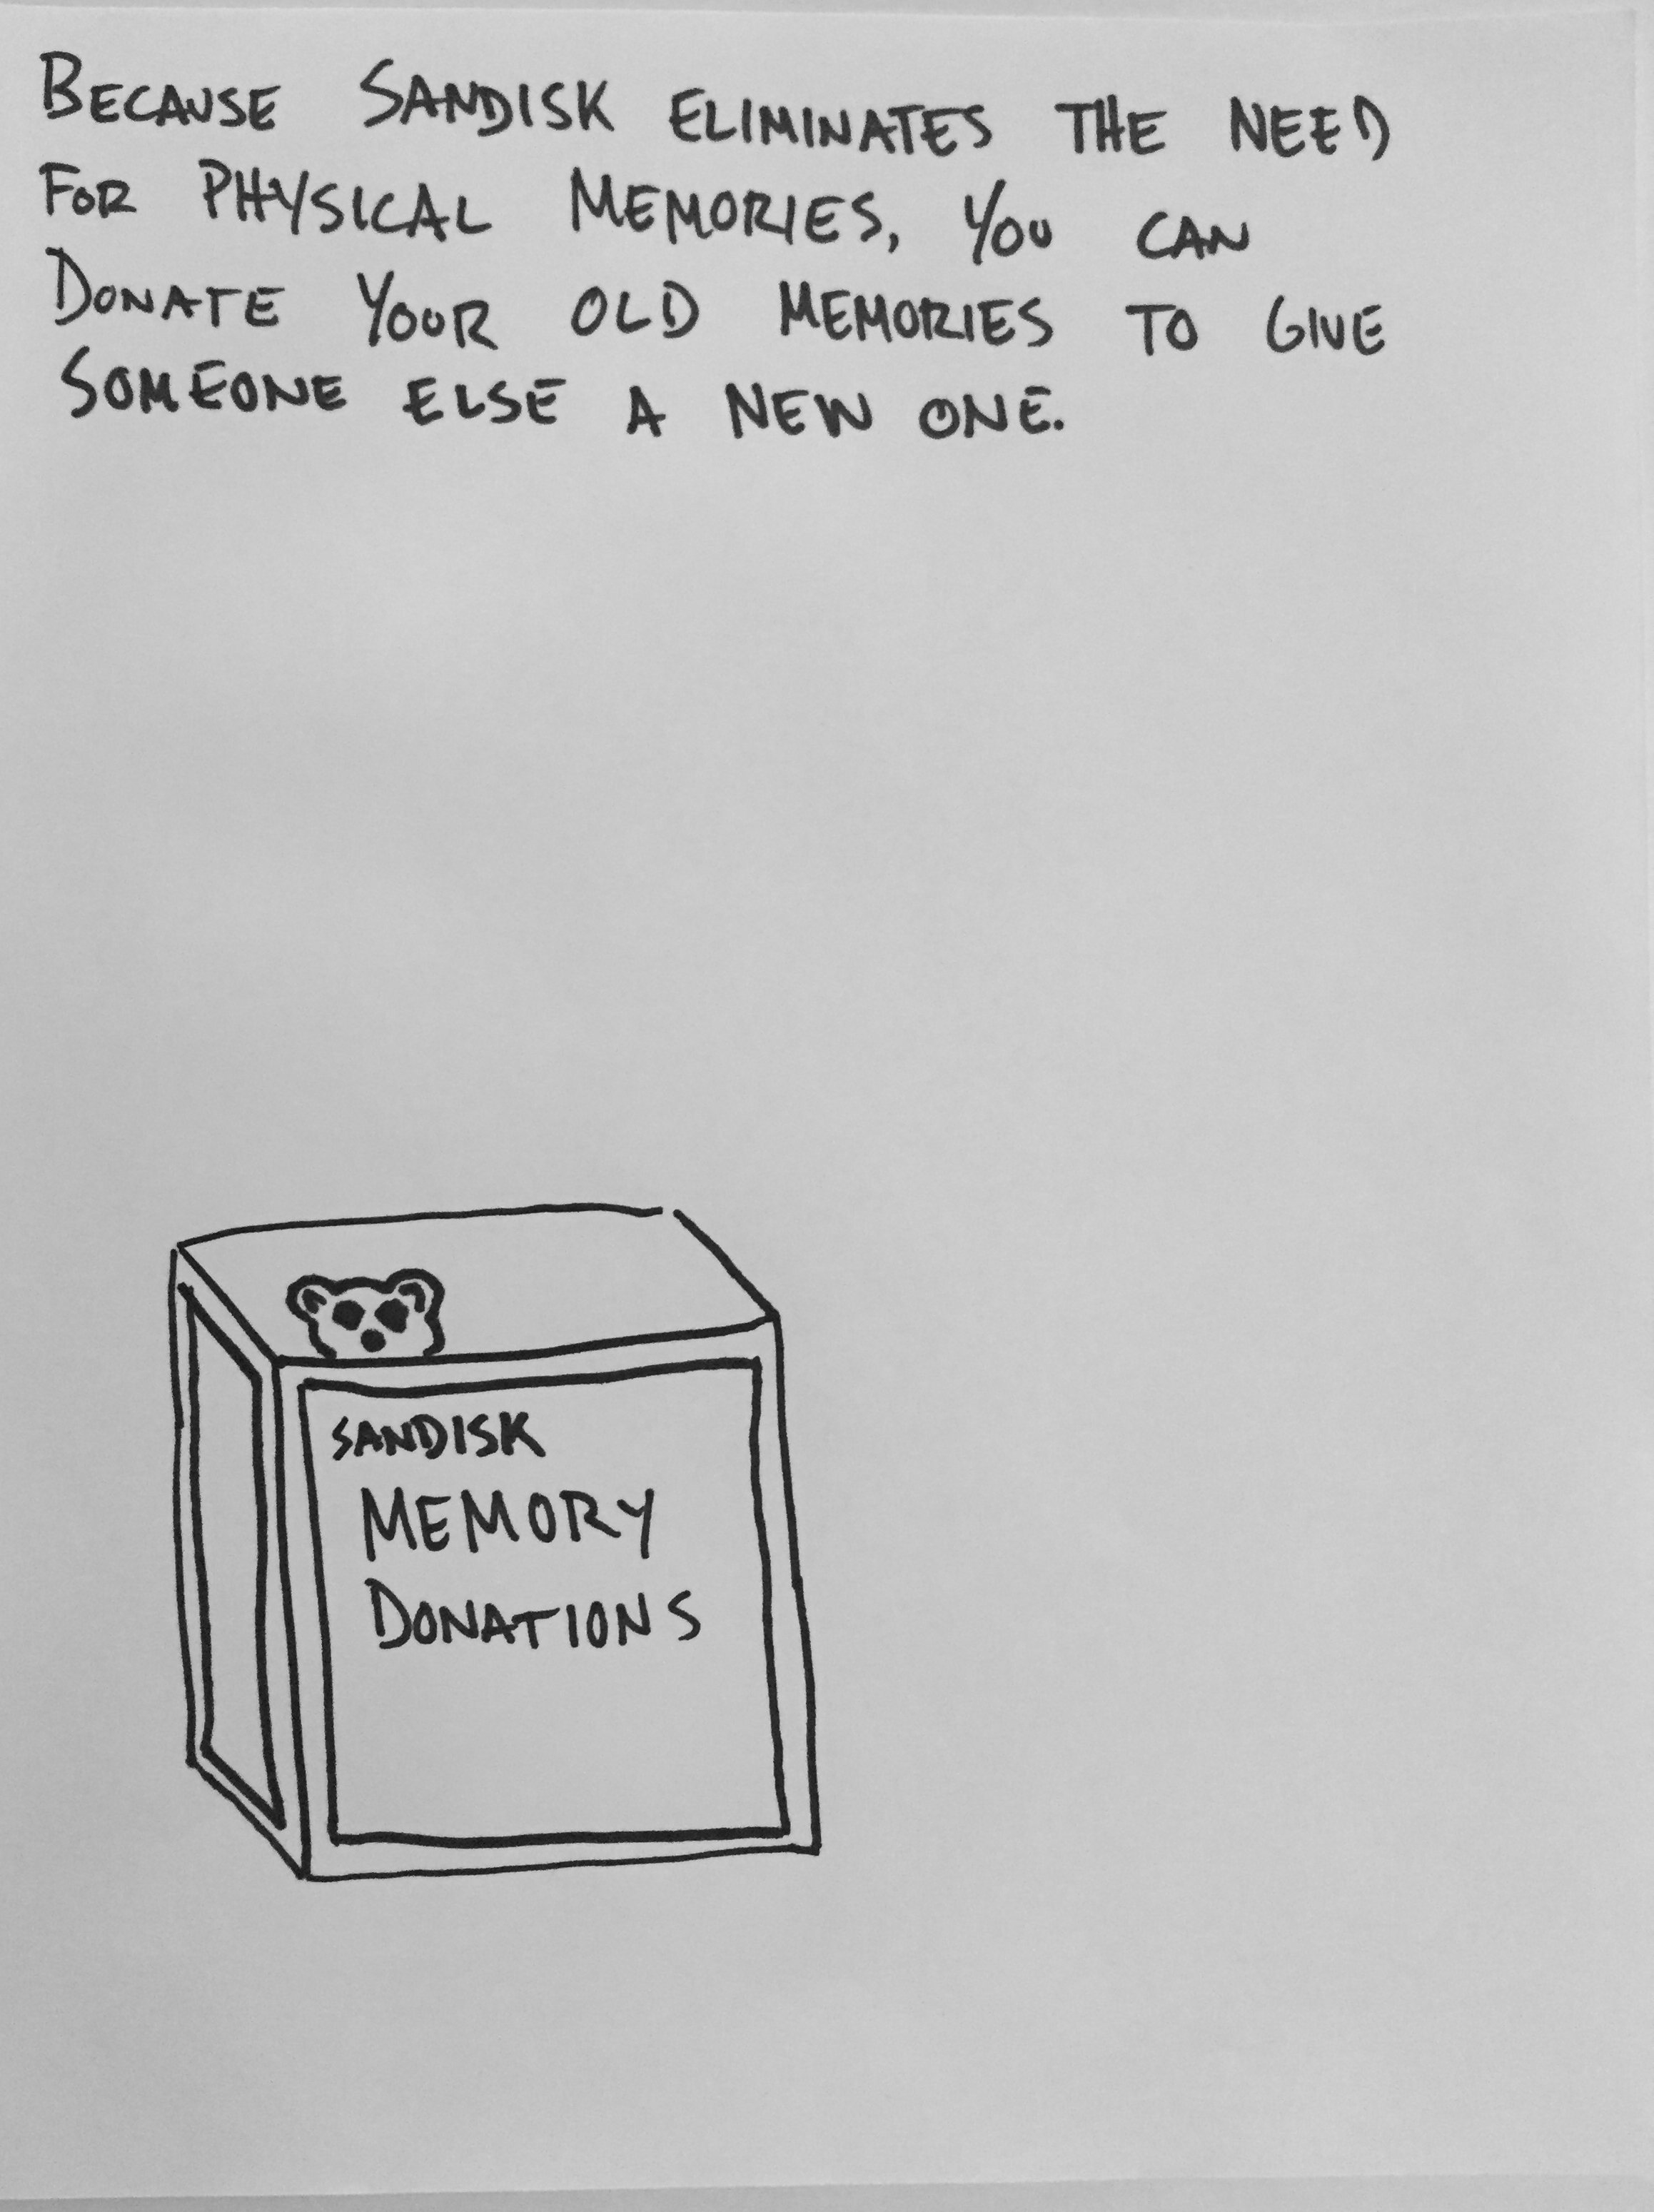 BECAUSE SANDISK ELIMINATES THE NEED
FOR PHYSICAL MEMORIES, YOU CAN
DONATE YOUR OLD MEMORIES TO GIVE
SOMEONE ELSE A NEW ONE.
SANDISK
MEMORY
DONATIONS